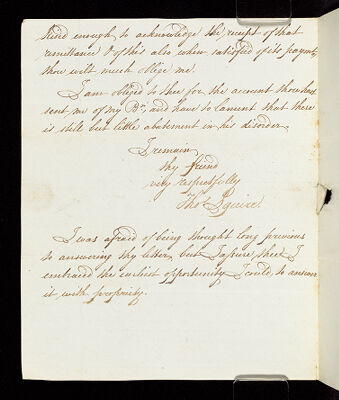 kind enough, to acknowledge the receipt of that
remittance & of this also, when satisfied of its payment,
thou wilt much oblige me.
I am obliged to thee for the account thou hast
sent me of my Br. and have to lament that there
is still but little abatement in his disorder.
I remain
thy friend
very respectfully
Thos. Squire
I was afraid of being thought long previous
to answering thy letter, but I assure thee I
embraced the earliest opportunity I could, to answer
it with propriety.